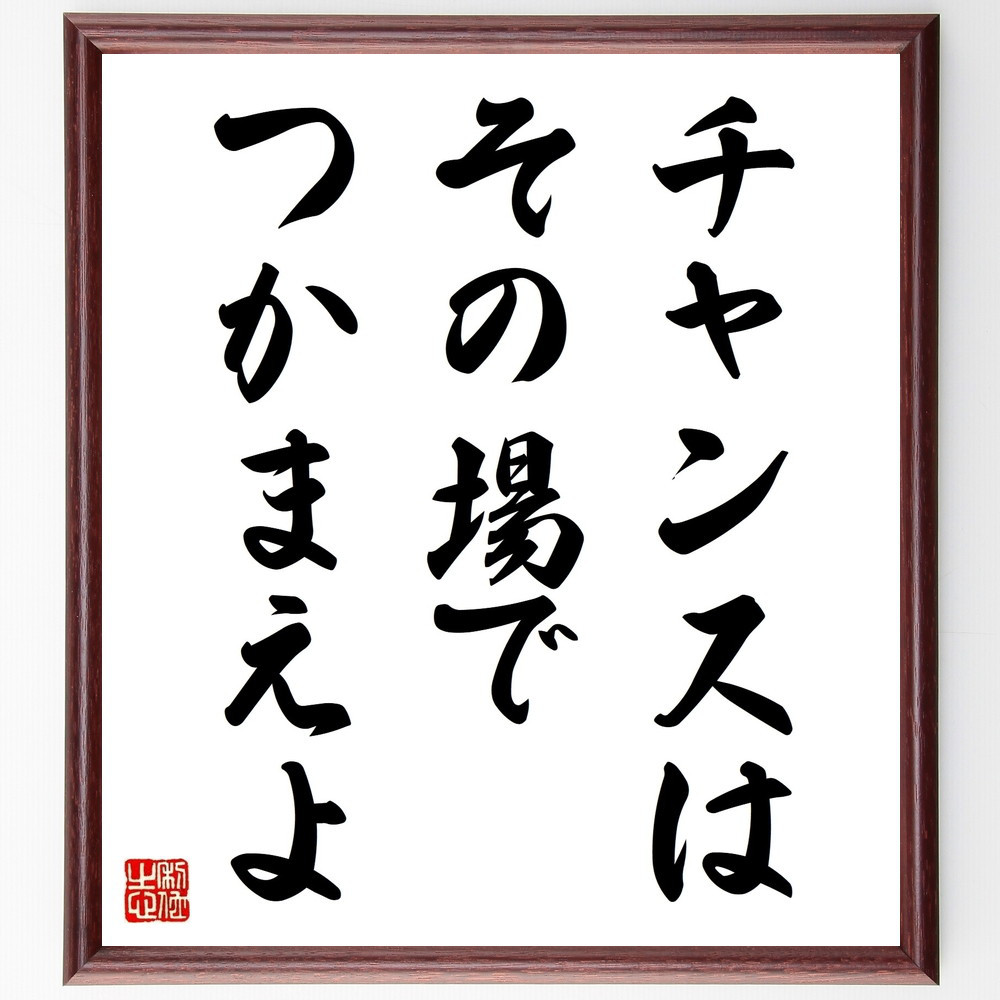 チャンスは
その場で
つかまえよ